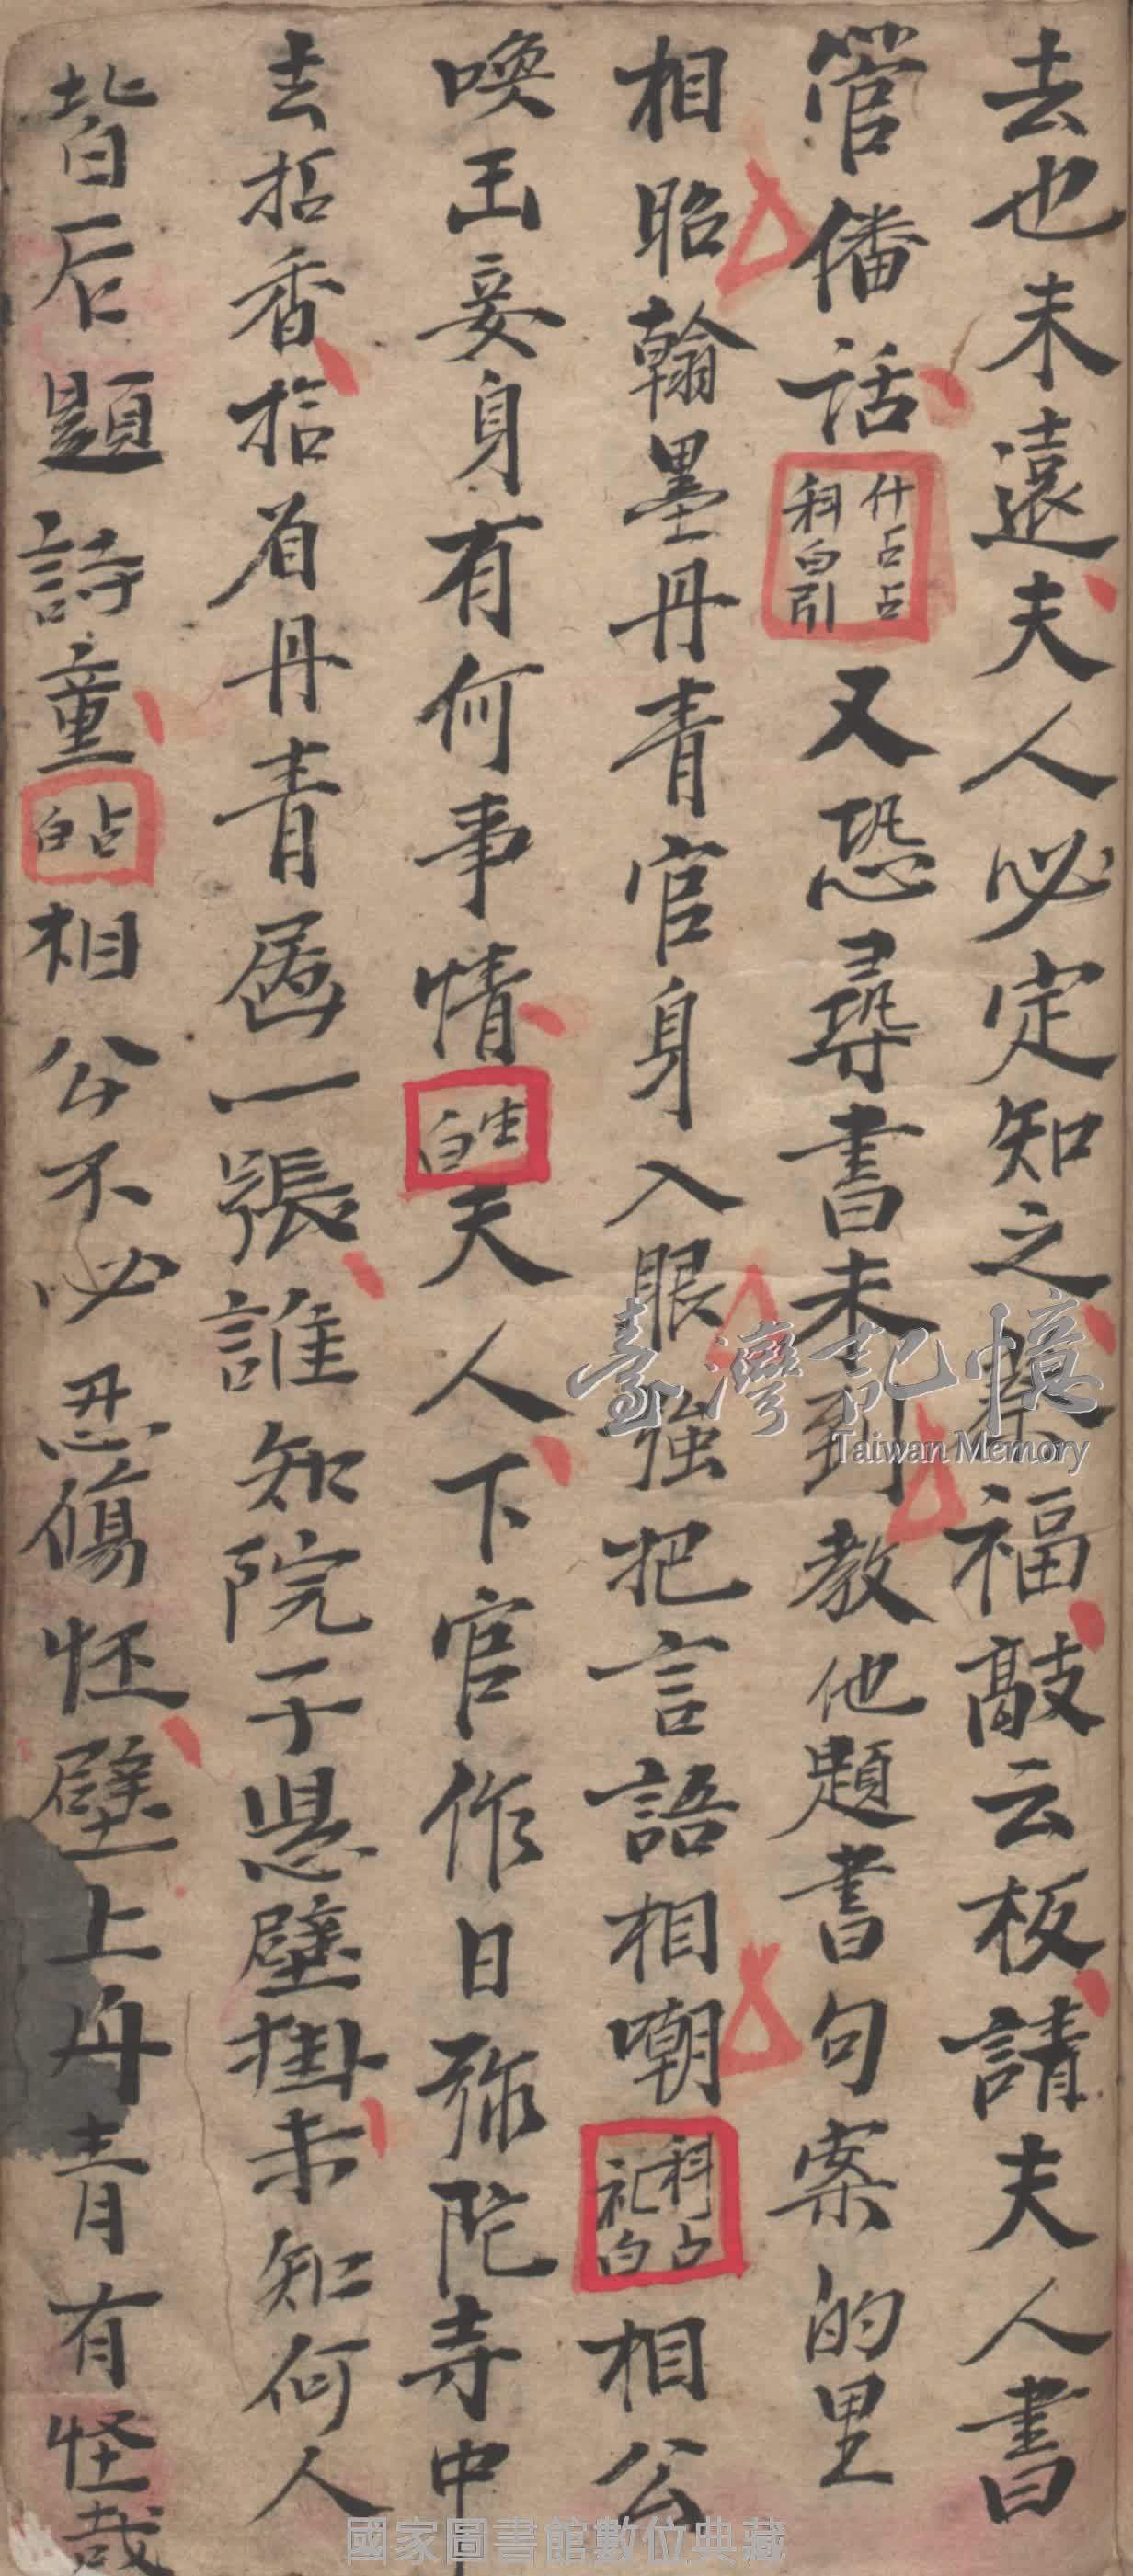 去也未遠夫人必定知之蔡福敲云板請夫人書
管僠話
什占占
科白引
又恐尋書未到教他題書句案的里
相昭翰墨丹青官身入眼強把言語相嘲
科占
介白
相公
喚出妾身有何事情
生
白
夫人下官作日弥陀寺中
去招香拾着丹青啚一張誰知院子思壁掛未知何人
背后題詩童
占
白
相公不必忍傷怪壁上丹青有怪哉
臺灣記憶
Taiwan Memory
國家圖書館數位典藏